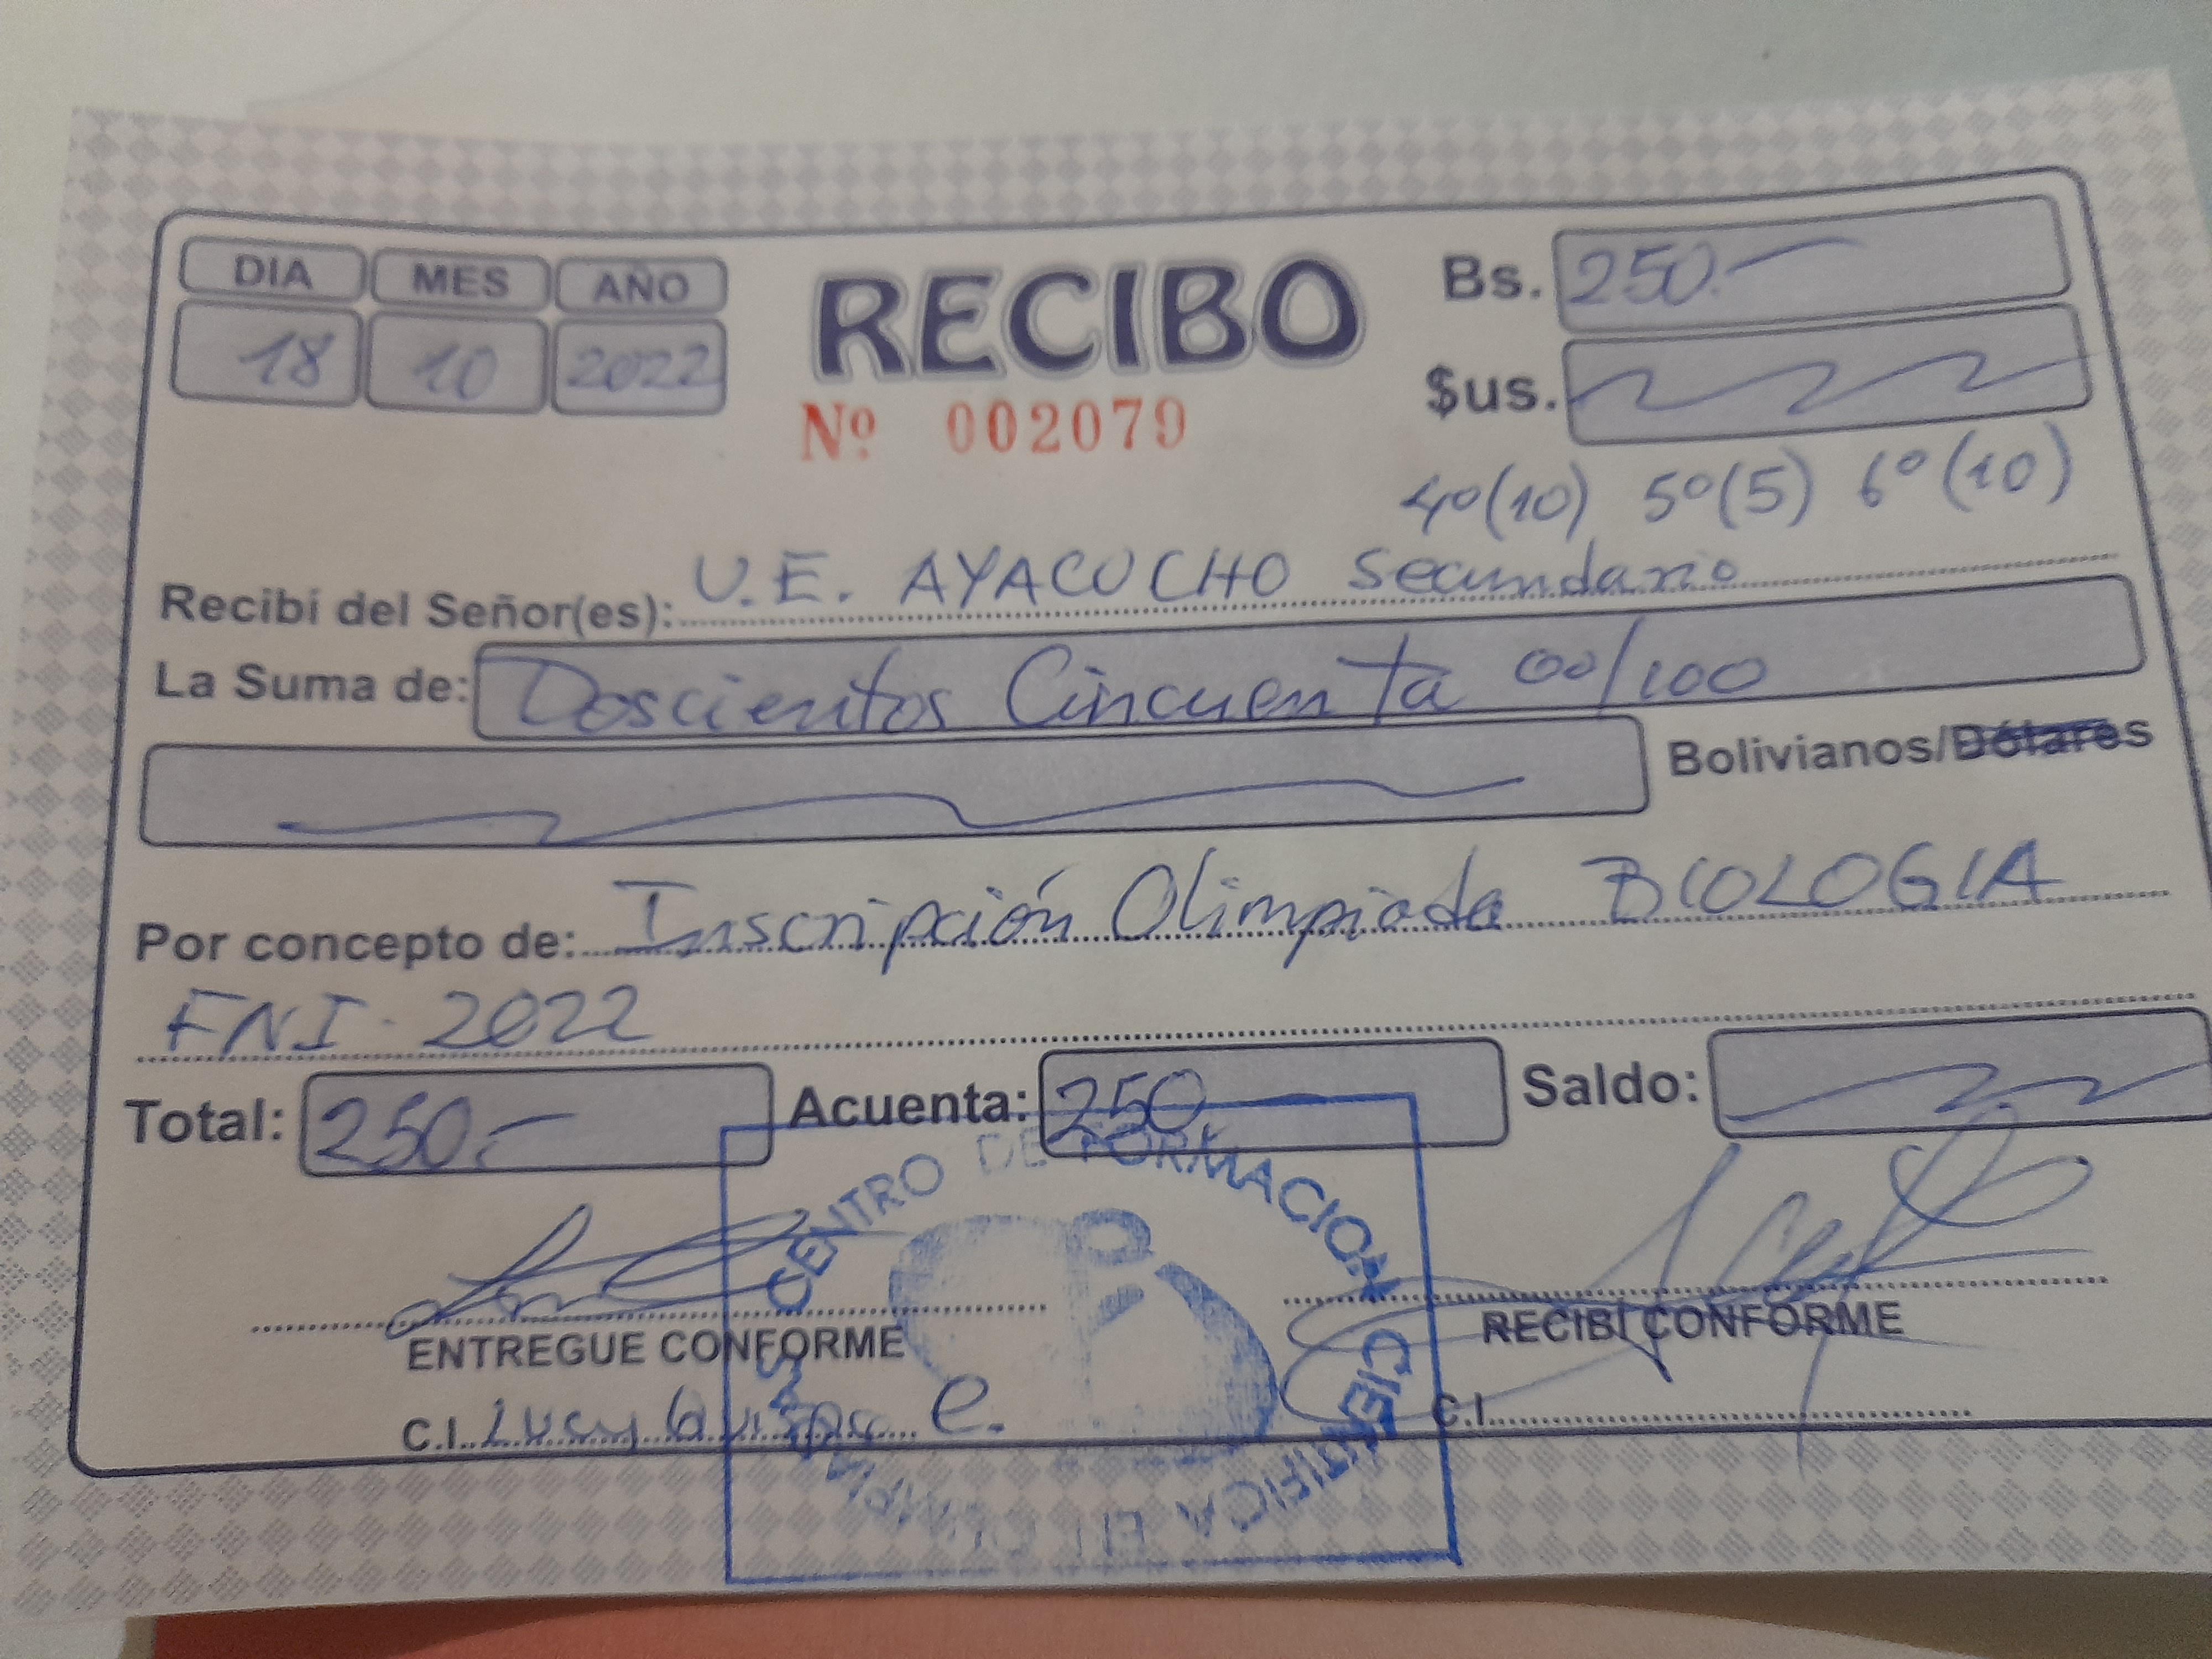 DIA MES AÑO
18 10 2022
RECIBO
Nº 002079
Bs. 250.-
$us.
4º(10) 5º(5) 6º(10)
Recibí del Señor(es): U.E. AYACUCHO secundario
La Suma de: Doscientos Cincuenta 00/100
Bolivianos/Dólares
Por concepto de: Inscripción Olimpiada BIOLOGIA
FNI - 2022
Total: 250.- Acuenta: 250 Saldo:
ENTREGUE CONFORME RECIBI CONFORME
C.I. C.I.
CENTRO DE FORMACIÓN
CIENTIFICA